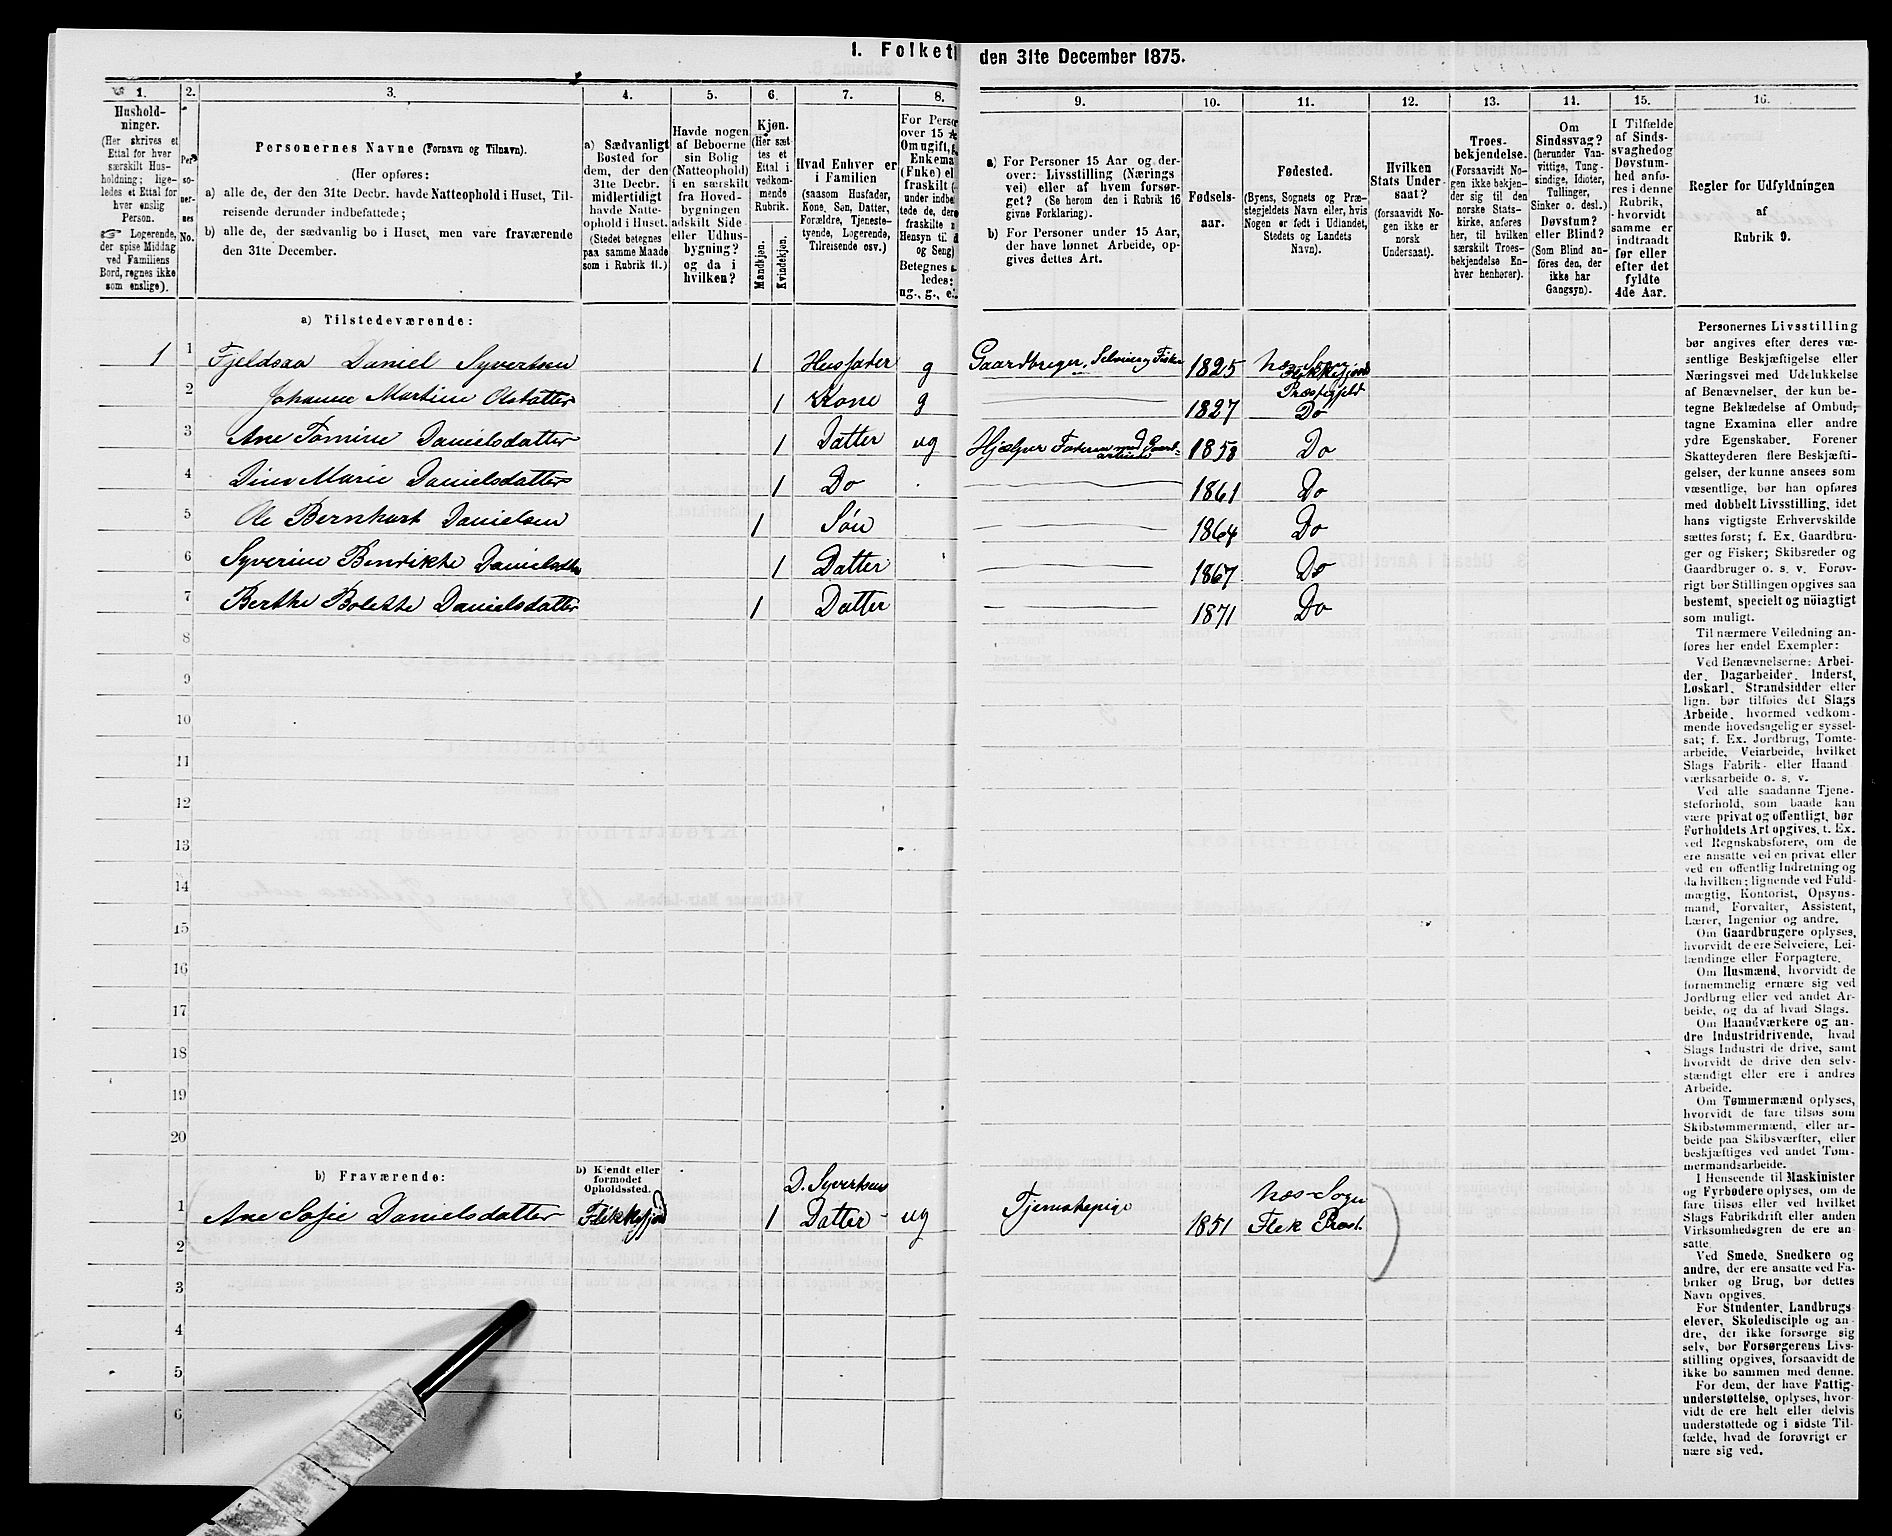 1. Folket
den 31te December 1875.
1.
Husholdninger.
(Her skrives et
Ettal for hver
særskilt Husholdning; ligeledes
et Ettal for
hver enslig
Person.
☞ Logerende,
der spise Middag
ved Familiens
Bord, regnes ikke
som enslige).
2.
Personernes
No.
3.
Personernes Navne (Fornavn og Tilnavn).
(Her opføres:
a) alle de, der den 31te Decbr. havde Natteophold i Huset, Tilreisende
derunder indbefattede;
b) alle de, der sædvanlig bo i Huset, men vare fraværende
den 31te December.
4.
a) Sædvanligt
Bosted for
dem, der den
31te Decbr.
midlertidigt
havde Natteophold
i Huset.
(Stedet betegnes
paa samme Maade
som i Rubrik 11.)
5.
Havde nogen
af Beboerne
sin Bolig
(Natteophold)
i en særskilt
fra Hovedbygningen
adskilt Side-
eller Udhusbygning?
og da i
hvilken?
6.
Kjøn.
(Her sættes
et
Ettal i
vedkommende
Rubrik.
Mandkjøn.
Kvindekjøn.
7.
Hvad Enhver er
i Familien
(saasom Husfader,
Kone, Søn, Datter,
Forældre, Tjenestetyende,
Logerende,
Tilreisende osv.)
8.
For Person
over 15 A
Om ugift,
Enkema
(Fuke) el
fraskilt (
under indbe
tede de, der
fraskilte
Hensyn til
og Seng)
Betegnes
ledes:
ug., g., e.
9.
a) For Personer 15 Aar og derover:
Livsstilling (Næringsvei)
eller af hvem forsørget?
(Se herom den i Rubrik 16
givne Forklaring).
b) For Personer under 15 Aar,
der have lønnet Arbeide, opgives
dettes Art.
10.
Fødselsaar.
11.
Fødested.
(Byens, Sognets og Præstegjeldets
Navn eller, hvis
Nogen er født i Udlandet,
Stedets og Landets
Navn).
12.
Hvilken
Stats Undersaat?
(forsaavidt Nogen
ikke er
norsk
Undersaat).
13.
Troesbekjendelse.
(Forsaavidt Nogen
ikke bekjender
sig til den
norske Statskirke,
anføres
her, til hvilken
særskilt Troesbekjendelse
Enhver
henhører).
14.
Om
Sindssvag?
(herunder Vanvittige,
Tungsindige,
Idioter,
Tullinger,
Sinker o. desl.)
Døvstum?
eller Blind?
(Som Blind anføres
den, der
ikke har
Gangsyn).
15.
I Tilfælde
af Sindssvaghed
og
Døvstumhed
anføres
i denne
Rubrik,
hvorvidt
samme er
indtraadt
før eller
efter det
fyldte
4de Aar.
16.
Regler for Udfyldningen
af
Rubrik 9.
a) Tilstedeværende:
1 1 Fjeldsaa Daniel Syvertsen 1 Husfader g Gaardbruger, Selveier og Fisker 1825 Næs Sogn Flekkefjord Præstegjeld
2 Johanne Martine Olsdatter 1 Kone g 1827 Do
3 Ane Tomine Danielsdatter 1 Datter ug Hjælper Faderen med Gaardarbeide 1858 Do
4 Dine Marie Danielsdatter 1 Do 1861 Do
5 Ole Bernhart Danielsen 1 Søn 1864 Do
6 Syverine Bendikte Danielsdtr 1 Datter 1867 Do
7 Berthe Bolette Danielsdatter 1 Datter 1871 Do
8
9
10
11
12
13
14
15
16
17
18
19
20
b) Fraværende:
b) Kjendt eller
formodet
Opholdssted.
1 Ane Sofie Danielsdatter Flekkefjord 1 D. Syvertsens Datter ug Tjenestepige 1851 Næs Sogn Flek Præst.
2
3
4
5
6
Personernes Livsstilling
bør angives efter deres væsentlige
Beskjæftigelse eller
Næringsvei med Udelukkelse
af Benævnelser, der kun betegne
Beklædelse af Ombud,
tagne Examina eller andre
ydre Egenskaber. Forener
Skatteyderen flere Beskjæftigelser,
der kunne ansees som
væsentlige, bør han opføres
med dobbelt Livsstilling, idet
hans vigtigste Erhvervskilde
sættes først; f. Ex. Gaardbruger
og Fisker; Skibsreder og
Gaardbruger o. s. v. Forøvrigt
bør Stillingen opgives saa
bestemt, specielt og nöiagtigt
som muligt.
Til nærmere Veiledning anføres
her endel Exempler:
Ved Benævnelserne: Arbeider,
Dagarbeider, Inderst,
Løskarl, Strandsidder eller
lign. bør tilføies det Slags
Arbeide, hvormed vedkommende
hovedsagelig er sysselsat;
f. Ex. Jordbrug, Tomtearbeide,
Veiarbeide, hvilket
Slags Fabrik- eller Haandværksarbeide
o. s. v.
Ved alle saadanne Tjenesteforhold,
som baade kan
være privat og offentligt, bør
Forholdets Art opgives, t. Ex.
ved Regnskabsførere, om de
ere ansatte ved en privat eller
ved en offentlig Indretning og
da hvilken; lignende ved Fuldmægtig,
Kontorist, Opsynsmand,
Forvalter, Assistent,
Lærer, Ingeniør og andre.
Om Gaardbrugere oplyses,
hvorvidt de ere Selveiere, Leilændinge
eller Forpagtere.
Om Husmænd, hvorvidt de
fornemmelig ernære sig ved
Jordbrug eller ved andet Arbeide,
og da af hvad Slags.
Om Haandværkere og andre
Industridrivende, hvad
Slags Industri de drive, samt
hvorvidt de drive den selvstændigt
eller ere i andres
Arbeide.
Om Tømmermænd oplyses,
hvorvidt de fare tilsøs som
Skibstømmermænd, eller arbeide
paa Skibsværfter, eller
beskjæftiges ved andet Tømmermandsarbeide.
I Henseende til Maskinister
og Fyrbødere oplyses, om de
fare tilsøs eller ved hvilket
Slags Fabrikdrift eller anden
Virksomhedsgren de ere ansatte.
Ved Smede, Snedkere og
andre, der ere ansatte ved Fabriker
og Brug, bør dettes
Navn opgives.
For Studenter, Landbrugselever,
Skoledisciple og andre,
der ikke forsørge sig
selv, bør Forsørgerens Livsstilling
opgives, forsaavidt de
ikke bo sammen med denne.
For dem, der have Fattigunderstøttelse,
oplyses, hvorvidt
de ere helt eller delvis
understøttede og i sidste Tilfælde,
hvad de forøvrigt ernære
sig ved.